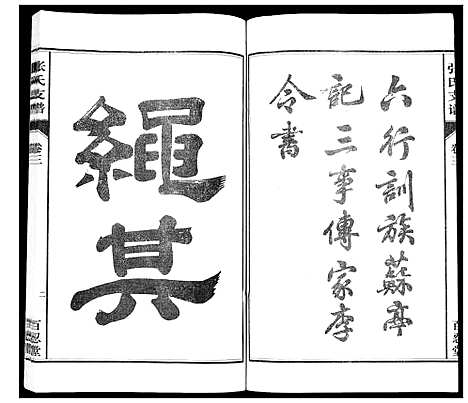 張氏支譜
卷三
六行訓族蘇亭
記三事傳家李
令書
百忍堂
張氏支譜
卷三
繩其
二
百忍堂